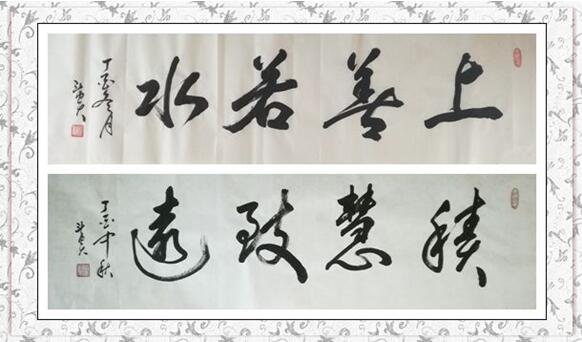 上善若水
丁酉冬月
積慧致遠
丁酉中秋